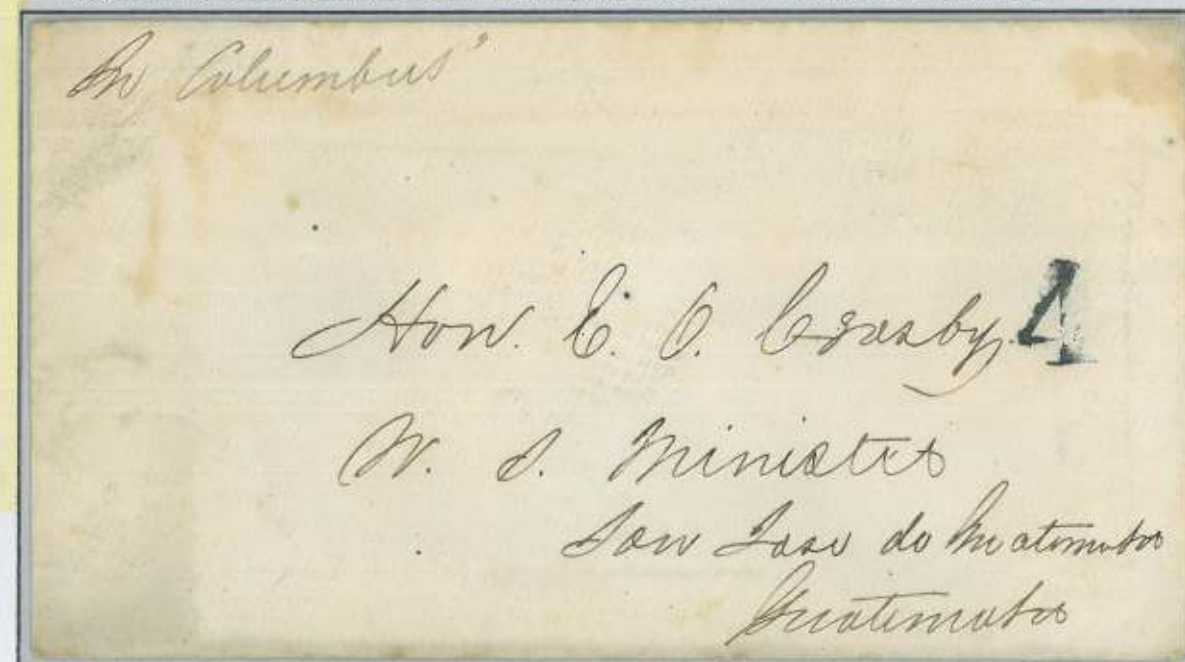 Pr Columbus"
Hon. E. O. Crosby. 4
U. S. Minister
San Jose de Guatemala
Guatemala